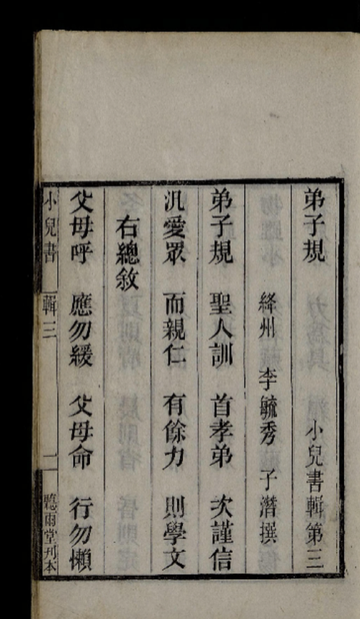 弟子規 小兒書輯第三
絳州 李毓秀 子潛撰
弟子規 聖人訓 首孝弟 次謹信
汎愛眾 而親仁 有餘力 則學文
右總敘
父母呼 應勿緩 父母命 行勿懶
小兒書 輯三 一 聽雨堂刊本